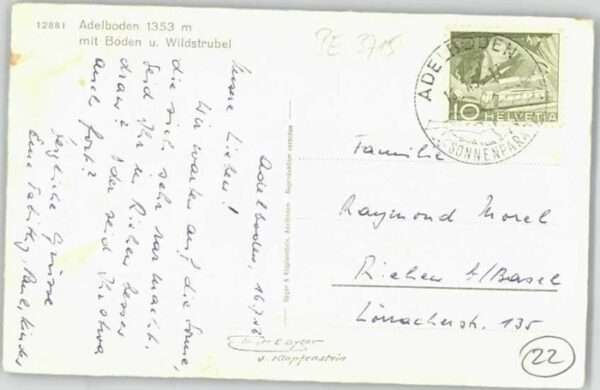 12881 Adelboden 1353 m
mit Boden u. Wildstrubel
PE 3715
Adelboden, 16.7.
Unsere Lieben!
Wir warten auf die Sonne,
die sich sehr rar macht.
Seid Ihr in Riehen besser
dran? Oder seid Ihr etwa
auch fort?
Herzliche Grüsse
Eure
ADELBODEN
SONNENPARA
10 HELVETIA
Familie
Raymond Morel
Riehen b/Basel
Lörracherstr. 135
Gyger & Klopfenstein, Adelboden Reproduktion verboten
v. Klopfenstein
22